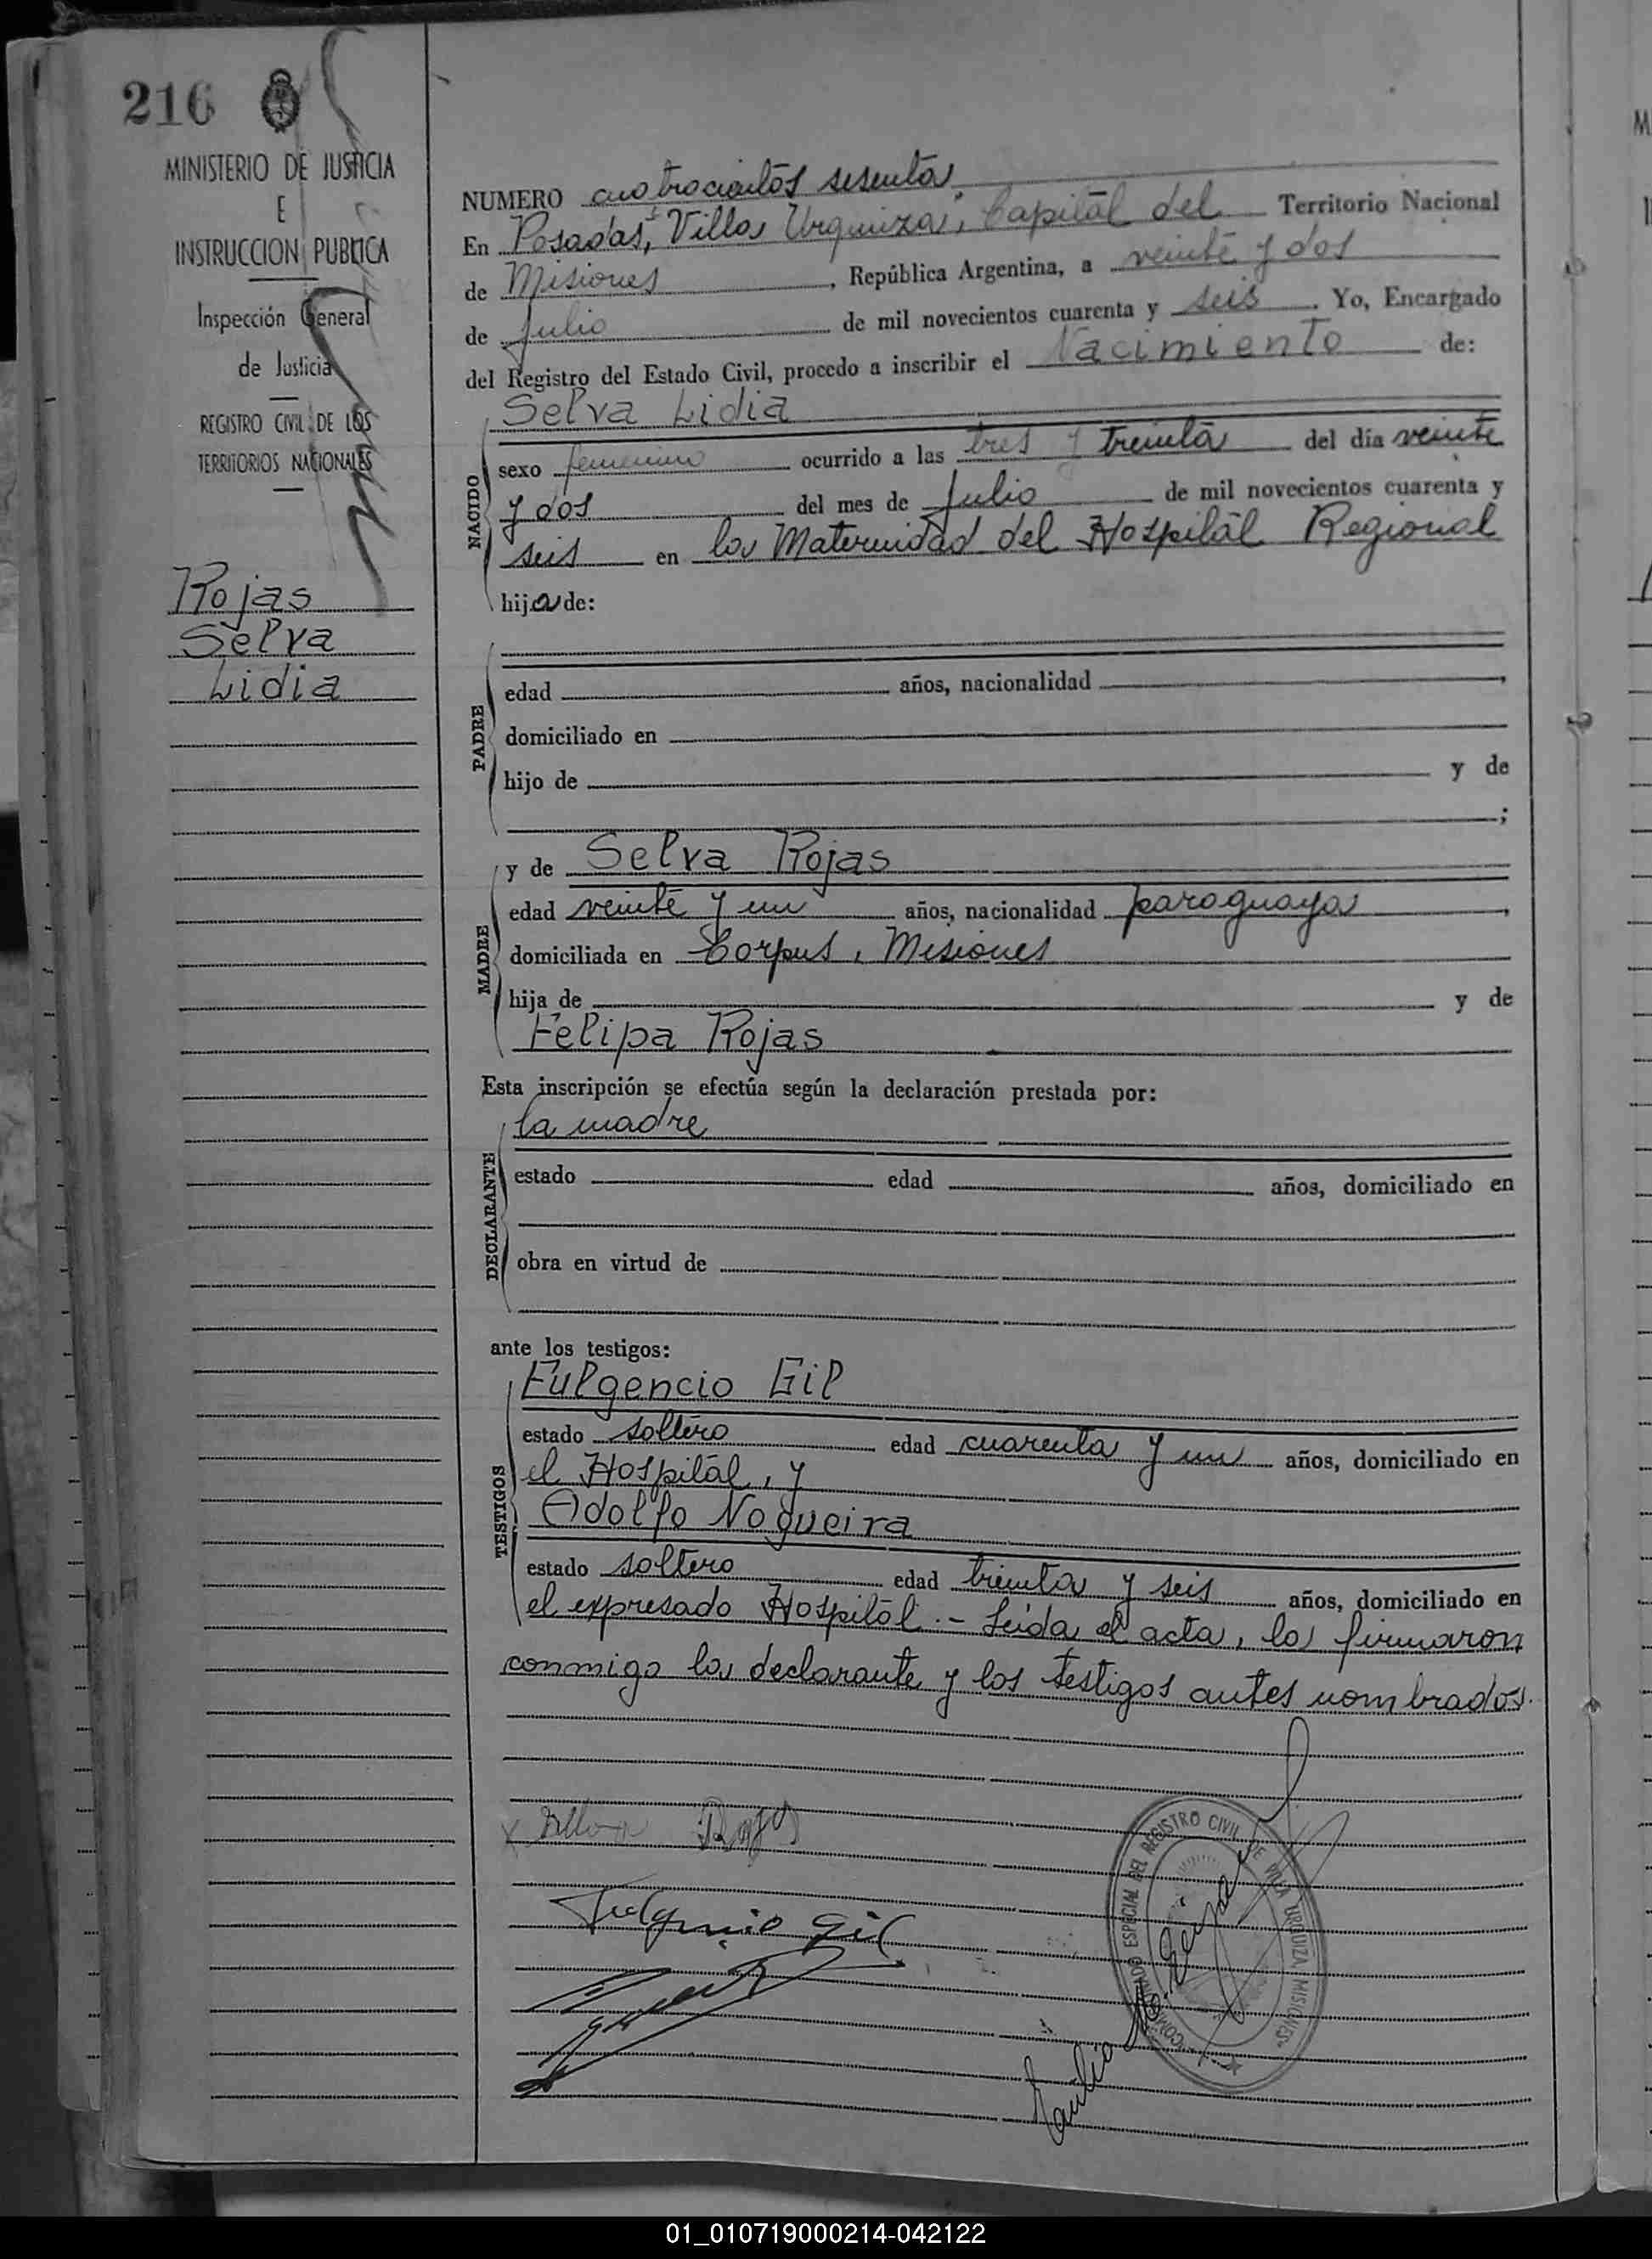 216
MINISTERIO DE JUSTICIA
E
INSTRUCCION PUBLICA
Inspección General
de Justicia
REGISTRO CIVIL DE LOS
TERRITORIOS NACIONALES
Rojas
Selva
Lidia
NUMERO cuatrocientos sesenta
En Posadas, Villa Urquiza, Capital del Territorio Nacional
de Misiones, República Argentina, a veinte y dos
de Julio de mil novecientos cuarenta y seis. Yo, Encargado
del Registro del Estado Civil, procedo a inscribir el Nacimiento de:
NACIDO
Selva Lidia
sexo femenino ocurrido a las tres y treinta del día veinte
y dos del mes de Julio de mil novecientos cuarenta y
seis en la Maternidad del Hospital Regional
hija de:
PADRE
edad años, nacionalidad ,
domiciliado en
hijo de y de
;
MADRE
y de Selva Rojas
edad veinte y un años, nacionalidad paraguaya,
domiciliada en Corpus, Misiones
hija de y de
Felipa Rojas
Esta inscripción se efectúa según la declaración prestada por:
DECLARANTE
la madre
estado edad años, domiciliado en
obra en virtud de
ante los testigos:
TESTIGOS
Fulgencio Gil
estado soltero edad cuarenta y un años, domiciliado en
el Hospital, y
Adolfo Nogueira
estado soltero edad treinta y seis años, domiciliado en
el expresado Hospital.- Leída el acta, la firmaron
conmigo la declarante y los testigos antes nombrados.
x Selva Rojas
Fulgencio Gil
ESPECIAL DEL REGISTRO CIVIL DE VILLA URQUIZA MISIONES
Emilio
01_010719000214-042122